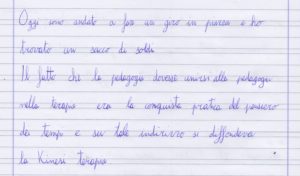 Oggi sono andato a fare un giro in piazza e ho
trovato un sacco di soldi
Il fatto che la pedagogia dovesse unirsi alla pedagogia
nella terapia era la conquista pratica del pensiero
dei tempi e su tale indirizzo si diffondeva
la Kinesi terapia